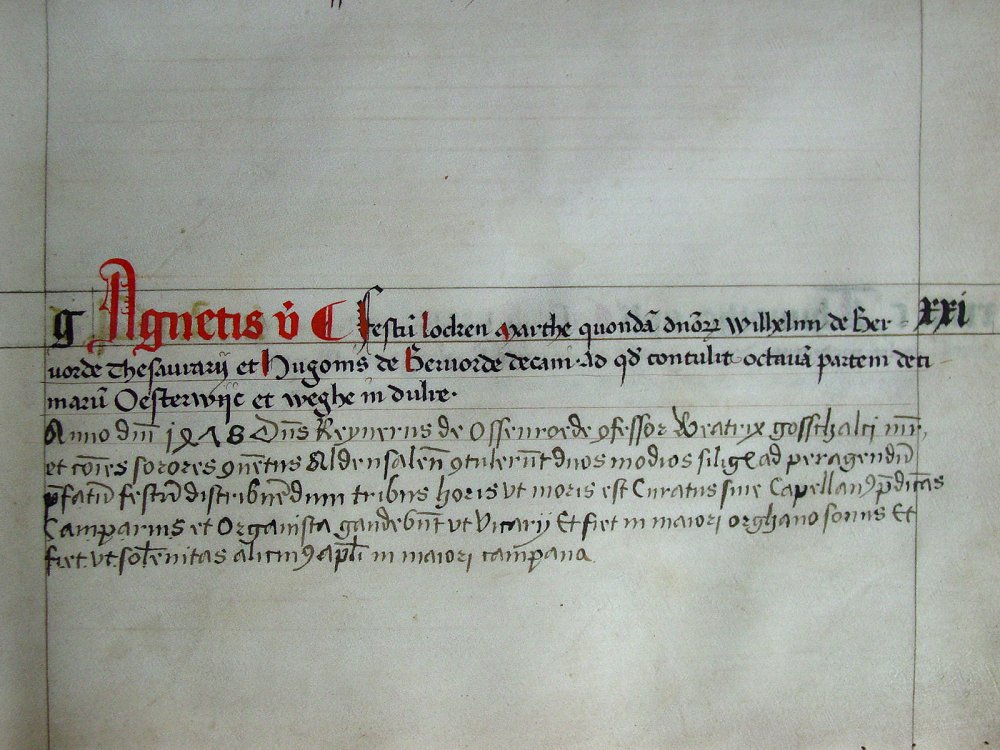 g Agnetis v̄ Festū locken Marthe quondā dnōrz Wilhelmi de Ber- xxi
uorde Thesaurarij et Hugonis de Beruorde decani Ad qd contulit octauā partem deci
marū Oesterwijc et weghe in dulre.
Anno dm̄ Dn̄s Reynerus de Ossenroede ꝯfessor Beatrix gosschalci mr̄,
et cōnes sorores ꝯuētus Aldensaleñ ꝯtulerūt duos modios siligı̄ ad peragendū
p̄fatū festū distribuēdum tribus horis vt moris est Curatus siue Capellanꝰ p̄dictas
Camparius et Organista gaudebūt vt vicarij Et fiet in maiori orghano sonus Et
fiet vt solēnitas alicuiꝰ apl̄i in maiori campana